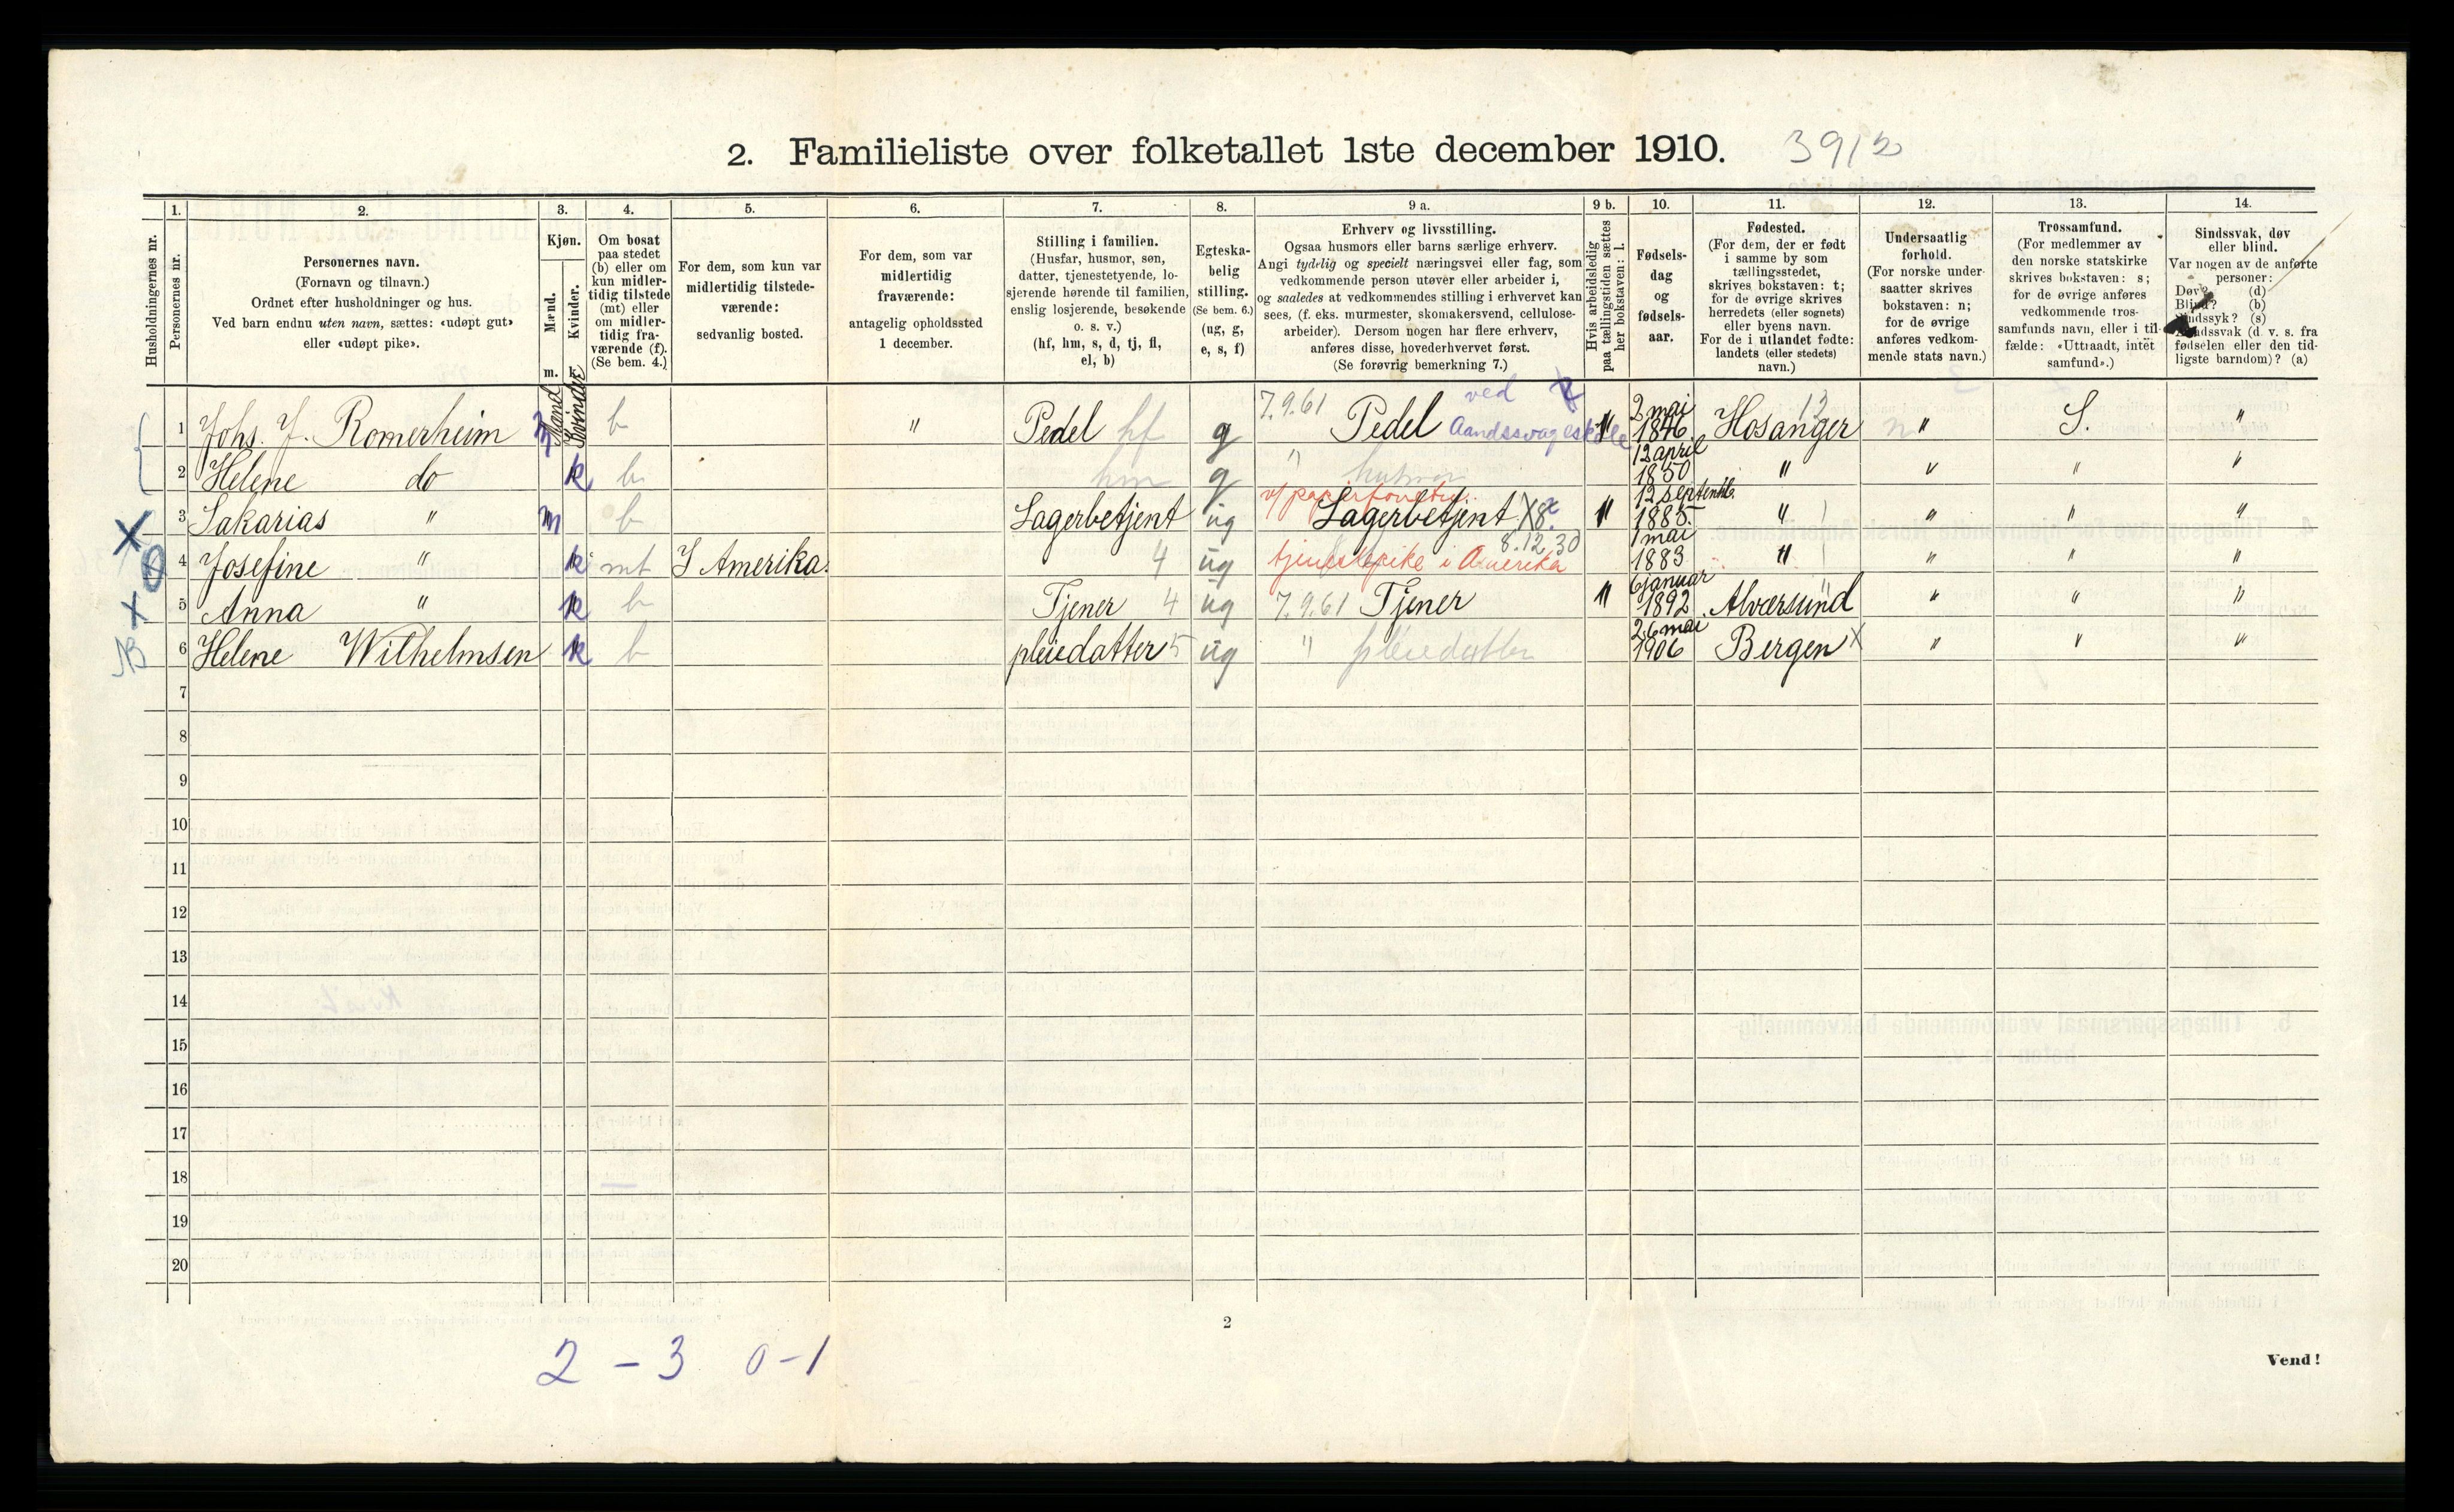 2. Familieliste over folketallet 1ste december 1910. 3912
1. 2. 3. 4. 5. 6. 7. 8. 9 a. 9 b. 10. 11. 12. 13. 14.
Husholdningernes nr.
Personernes nr.
Personernes navn.
(Fornavn og tilnavn.)
Ordnet efter husholdninger og hus.
Ved barn endnu uten navn, sættes: «udøpt gut»
eller «udøpt pike».
Kjøn.
Mænd.
Kvinder.
m. k.
Om bosat
paa stedet
(b) eller om
kun midler-
tidig tilstede
(mt) eller
om midler-
tidig fra-
værende (f).
(Se bem. 4.)
For dem, som kun var
midlertidig tilstede-
værende:
sedvanlig bosted.
For dem, som var
midlertidig
fraværende:
antagelig opholdssted
1 december.
Stilling i familien.
(Husfar, husmor, søn,
datter, tjenestetyende, lo-
sjerende hørende til familien,
enslig losjerende, besøkende
o. s. v.)
(hf, hm, s, d, tj, fl,
el, b)
Egteska-
belig
stilling.
(Se bem. 6.)
(ug, g,
e, s, f)
Erhverv og livsstilling.
Ogsaa husmors eller barns særlige erhverv.
Angi tydelig og specielt næringsvei eller fag, som
vedkommende person utøver eller arbeider i,
og saaledes at vedkommendes stilling i erhvervet kan
sees, (f. eks. murmester, skomakersvend, cellulose-
arbeider). Dersom nogen har flere erhverv,
anføres disse, hovederhvervet først.
(Se forøvrig bemerkning 7.)
Hvis arbeidsledig
paa tællingstiden sættes
her bokstaven: l.
Fødsels-
dag
og
fødsels-
aar.
Fødested.
(For dem, der er født
i samme by som
tællingsstedet,
skrives bokstaven: t;
for de øvrige skrives
herredets (eller sognets)
eller byens navn.
For de i utlandet fødte:
landets (eller stedets)
navn.)
Undersaatlig
forhold.
(For norske under-
saatter skrives
bokstaven: n;
for de øvrige
anføres vedkom-
mende stats navn.)
Trossamfund.
(For medlemmer av
den norske statskirke
skrives bokstaven: s;
for de øvrige anføres
vedkommende tros-
samfunds navn, eller i til-
fælde: «Uttraadt, intet
samfund».)
Sindssvak, døv
eller blind.
Var nogen av de anførte
personer:
Døv? (d)
Blind? (b)
Sindssyk? (s)
Aandssvak (d. v. s. fra
fødselen eller den tid-
ligste barndom)? (a)
Mænd Kvinder
1 Johs. J. Romerheim m b " Pedel hf g 7.9.61 Pedel ved Aandssvageskole 2 mai 1846 Hosanger 12 n " S. "
2 Helene do k b hm g " husmor 12 april 1850 " " " "
3 Sakarias " m b Lagerbetjent ug Lagerbetjent 12 septembr. 1885. " " " "
4 Josefine " k mt I Amerika. 4 ug tjenestepike i Amerika 8.12.30 1 mai 1883 " " " "
5 Anna " k b Tjener 4 ug 7.9.61 Tjener 6 januar 1892 Alversund " " "
6 Helene Wilhelmsen k b pleiedatter 5 ug " pleiedatter 26 mai 1906 Bergen x " " "
7
8
9
10
11
12
13
14
15
16
17
18
19
20
2
2 - 3 0 - 1
Vend!